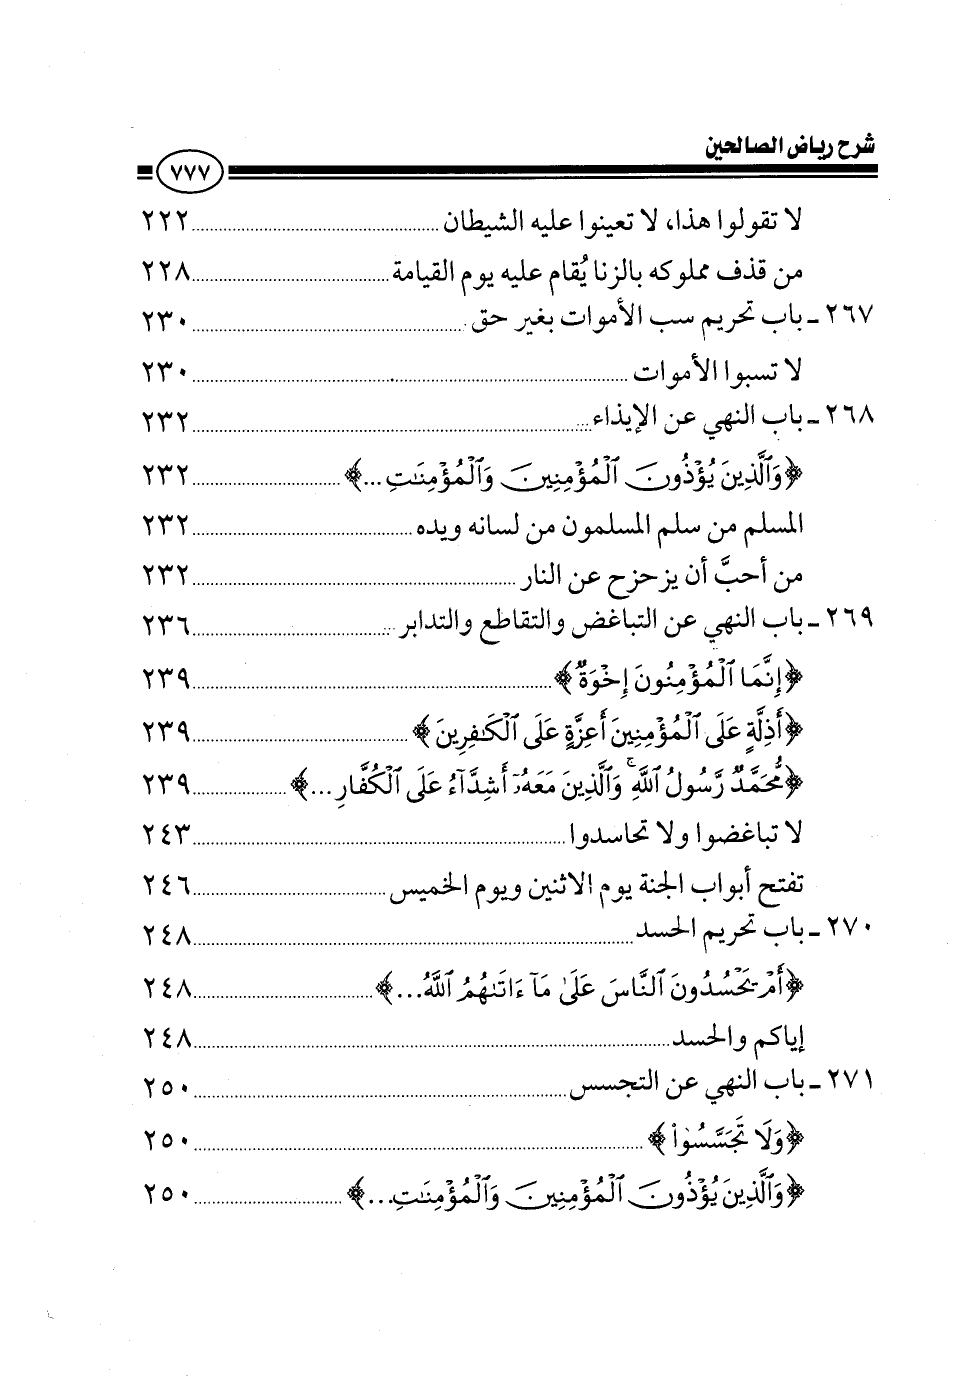 شرح رياض الصالحين
٧٧٧
لا تقولوا هذا، لا تعينوا عليه الشيطان ........ ٢٢٢
من قذف مملوكه بالزنا يُقام عليه يوم القيامة ........ ٢٢٨
٢٦٧ ـ باب تحريم سب الأموات بغير حق ........ ٢٣٠
لا تسبوا الأموات ........ ٢٣٠
٢٦٨ ـ باب النهي عن الإيذاء ........ ٢٣٢
﴿وَٱلَّذِينَ يُؤْذُونَ ٱلْمُؤْمِنِينَ وَٱلْمُؤْمِنَٰتِ ...﴾ ........ ٢٣٢
المسلم من سلم المسلمون من لسانه ويده ........ ٢٣٢
من أحبَّ أن يزحزح عن النار ........ ٢٣٢
٢٦٩ ـ باب النهي عن التباغض والتقاطع والتدابر ........ ٢٣٦
﴿إِنَّمَا ٱلْمُؤْمِنُونَ إِخْوَةٌ﴾ ........ ٢٣٩
﴿أَذِلَّةٍ عَلَى ٱلْمُؤْمِنِينَ أَعِزَّةٍ عَلَى ٱلْكَٰفِرِينَ﴾ ........ ٢٣٩
﴿مُّحَمَّدٌ رَّسُولُ ٱللَّهِ ۚ وَٱلَّذِينَ مَعَهُۥٓ أَشِدَّآءُ عَلَى ٱلْكُفَّارِ ...﴾ ........ ٢٣٩
لا تباغضوا ولا تحاسدوا ........ ٢٤٣
تفتح أبواب الجنة يوم الاثنين ويوم الخميس ........ ٢٤٦
٢٧٠ ـ باب تحريم الحسد ........ ٢٤٨
﴿أَمْ يَحْسُدُونَ ٱلنَّاسَ عَلَىٰ مَآ ءَاتَىٰهُمُ ٱللَّهُ ...﴾ ........ ٢٤٨
إياكم والحسد ........ ٢٤٨
٢٧١ ـ باب النهي عن التجسس ........ ٢٥٠
﴿وَلَا تَجَسَّسُوا۟﴾ ........ ٢٥٠
﴿وَٱلَّذِينَ يُؤْذُونَ ٱلْمُؤْمِنِينَ وَٱلْمُؤْمِنَٰتِ ...﴾ ........ ٢٥٠